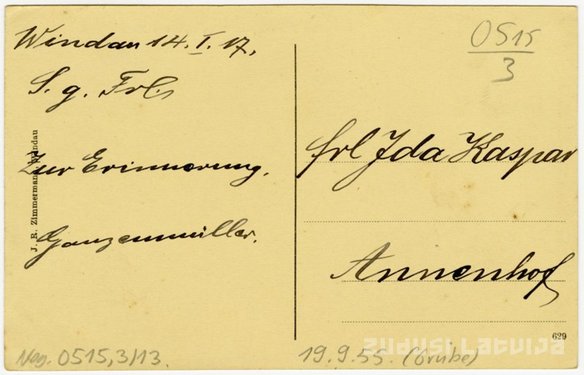 Windau 14. I. 17.
S. g. Frl.
Zur Erinnerung.
Ganzenmüller.
J. R. Zimmermann, Windau
0515
3
frl Ida Kaspar
Annenhof
629
zudusilatvija
Neg. 0515,3/13.
19.9.55. (Grube)